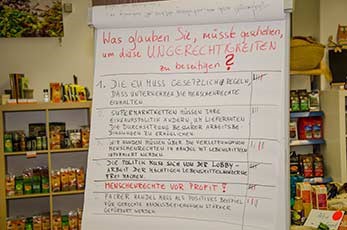 Was glauben Sie, müsste geschehen,
um diese UNGERECHTIGKEITEN
zu beseitigen?
1. DIE EU MUSS GESETZLICH REGELN,
DASS UNTERNEHMEN DIE MENSCHENRECHTE
EINHALTEN.
SUPERMARKETKETTEN MÜSSEN IHRE
EINKAUFSPOLITIK ÄNDERN, UM LIEFERANTEN
DIE DURCHSETZUNG BESSERER ARBEITSBE-
DINGUNGEN ZU ERMÖGLICHEN.
WIR KUNDEN MÜSSEN ÜBER DIE
MENSCHENRECHTEN IM HANDEL MIT LEBENSMITTELN
INFORMIERT WERDEN.
DIE POLITIK MUSS SICH VON DER LOBBY-
ARBEIT DER MÄCHTIGEN LEBENSMITTELKONZERNE
FREI MACHEN.
MENSCHENRECHTE VOR PROFIT!
FAIRER HANDEL MUSS ALS POSITIVES BEISPIEL
FÜR GERECHTE HANDELSBEZIEHUNGEN STÄRKER
GEFÖRDERT WERDEN.